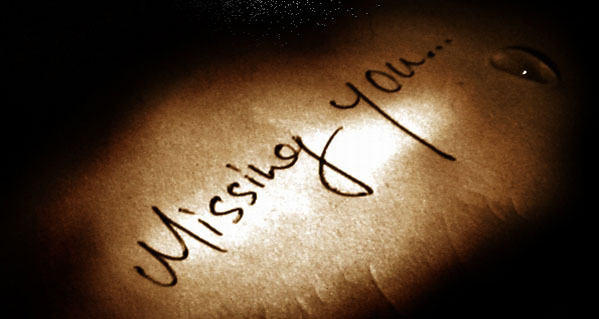 Missing you...